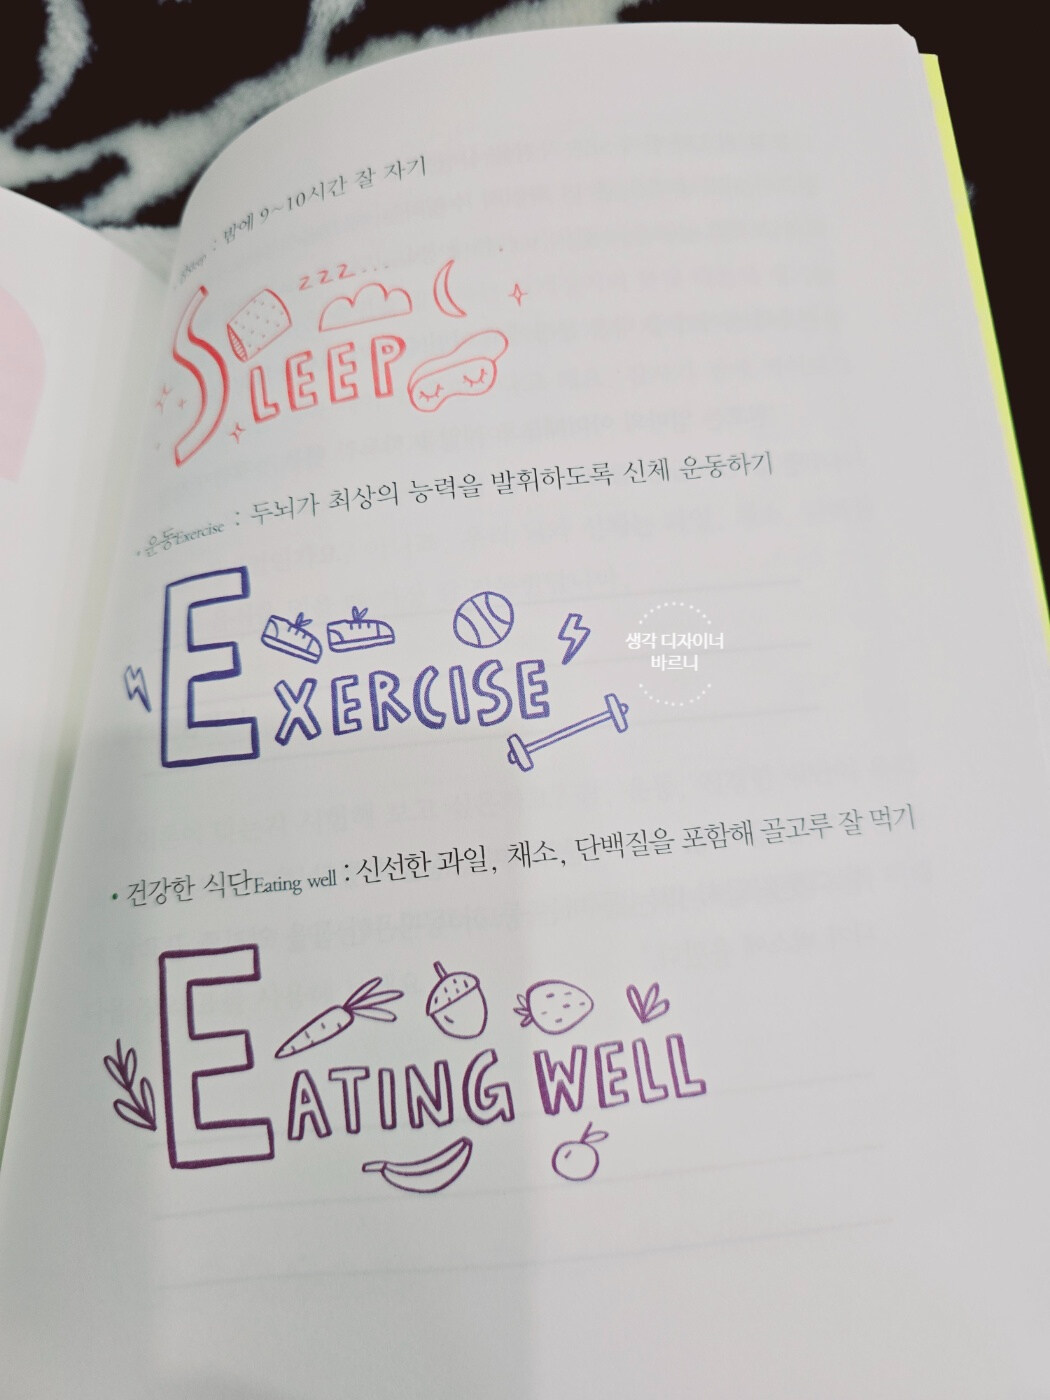 : 밤에 9~10시간 잘 자기
zzz...
SLEEP
• 운동Exercise : 두뇌가 최상의 능력을 발휘하도록 신체 운동하기
EXERCISE
생각 디자이너
바르니
• 건강한 식단Eating well : 신선한 과일, 채소, 단백질을 포함해 골고루 잘 먹기
EATING WELL